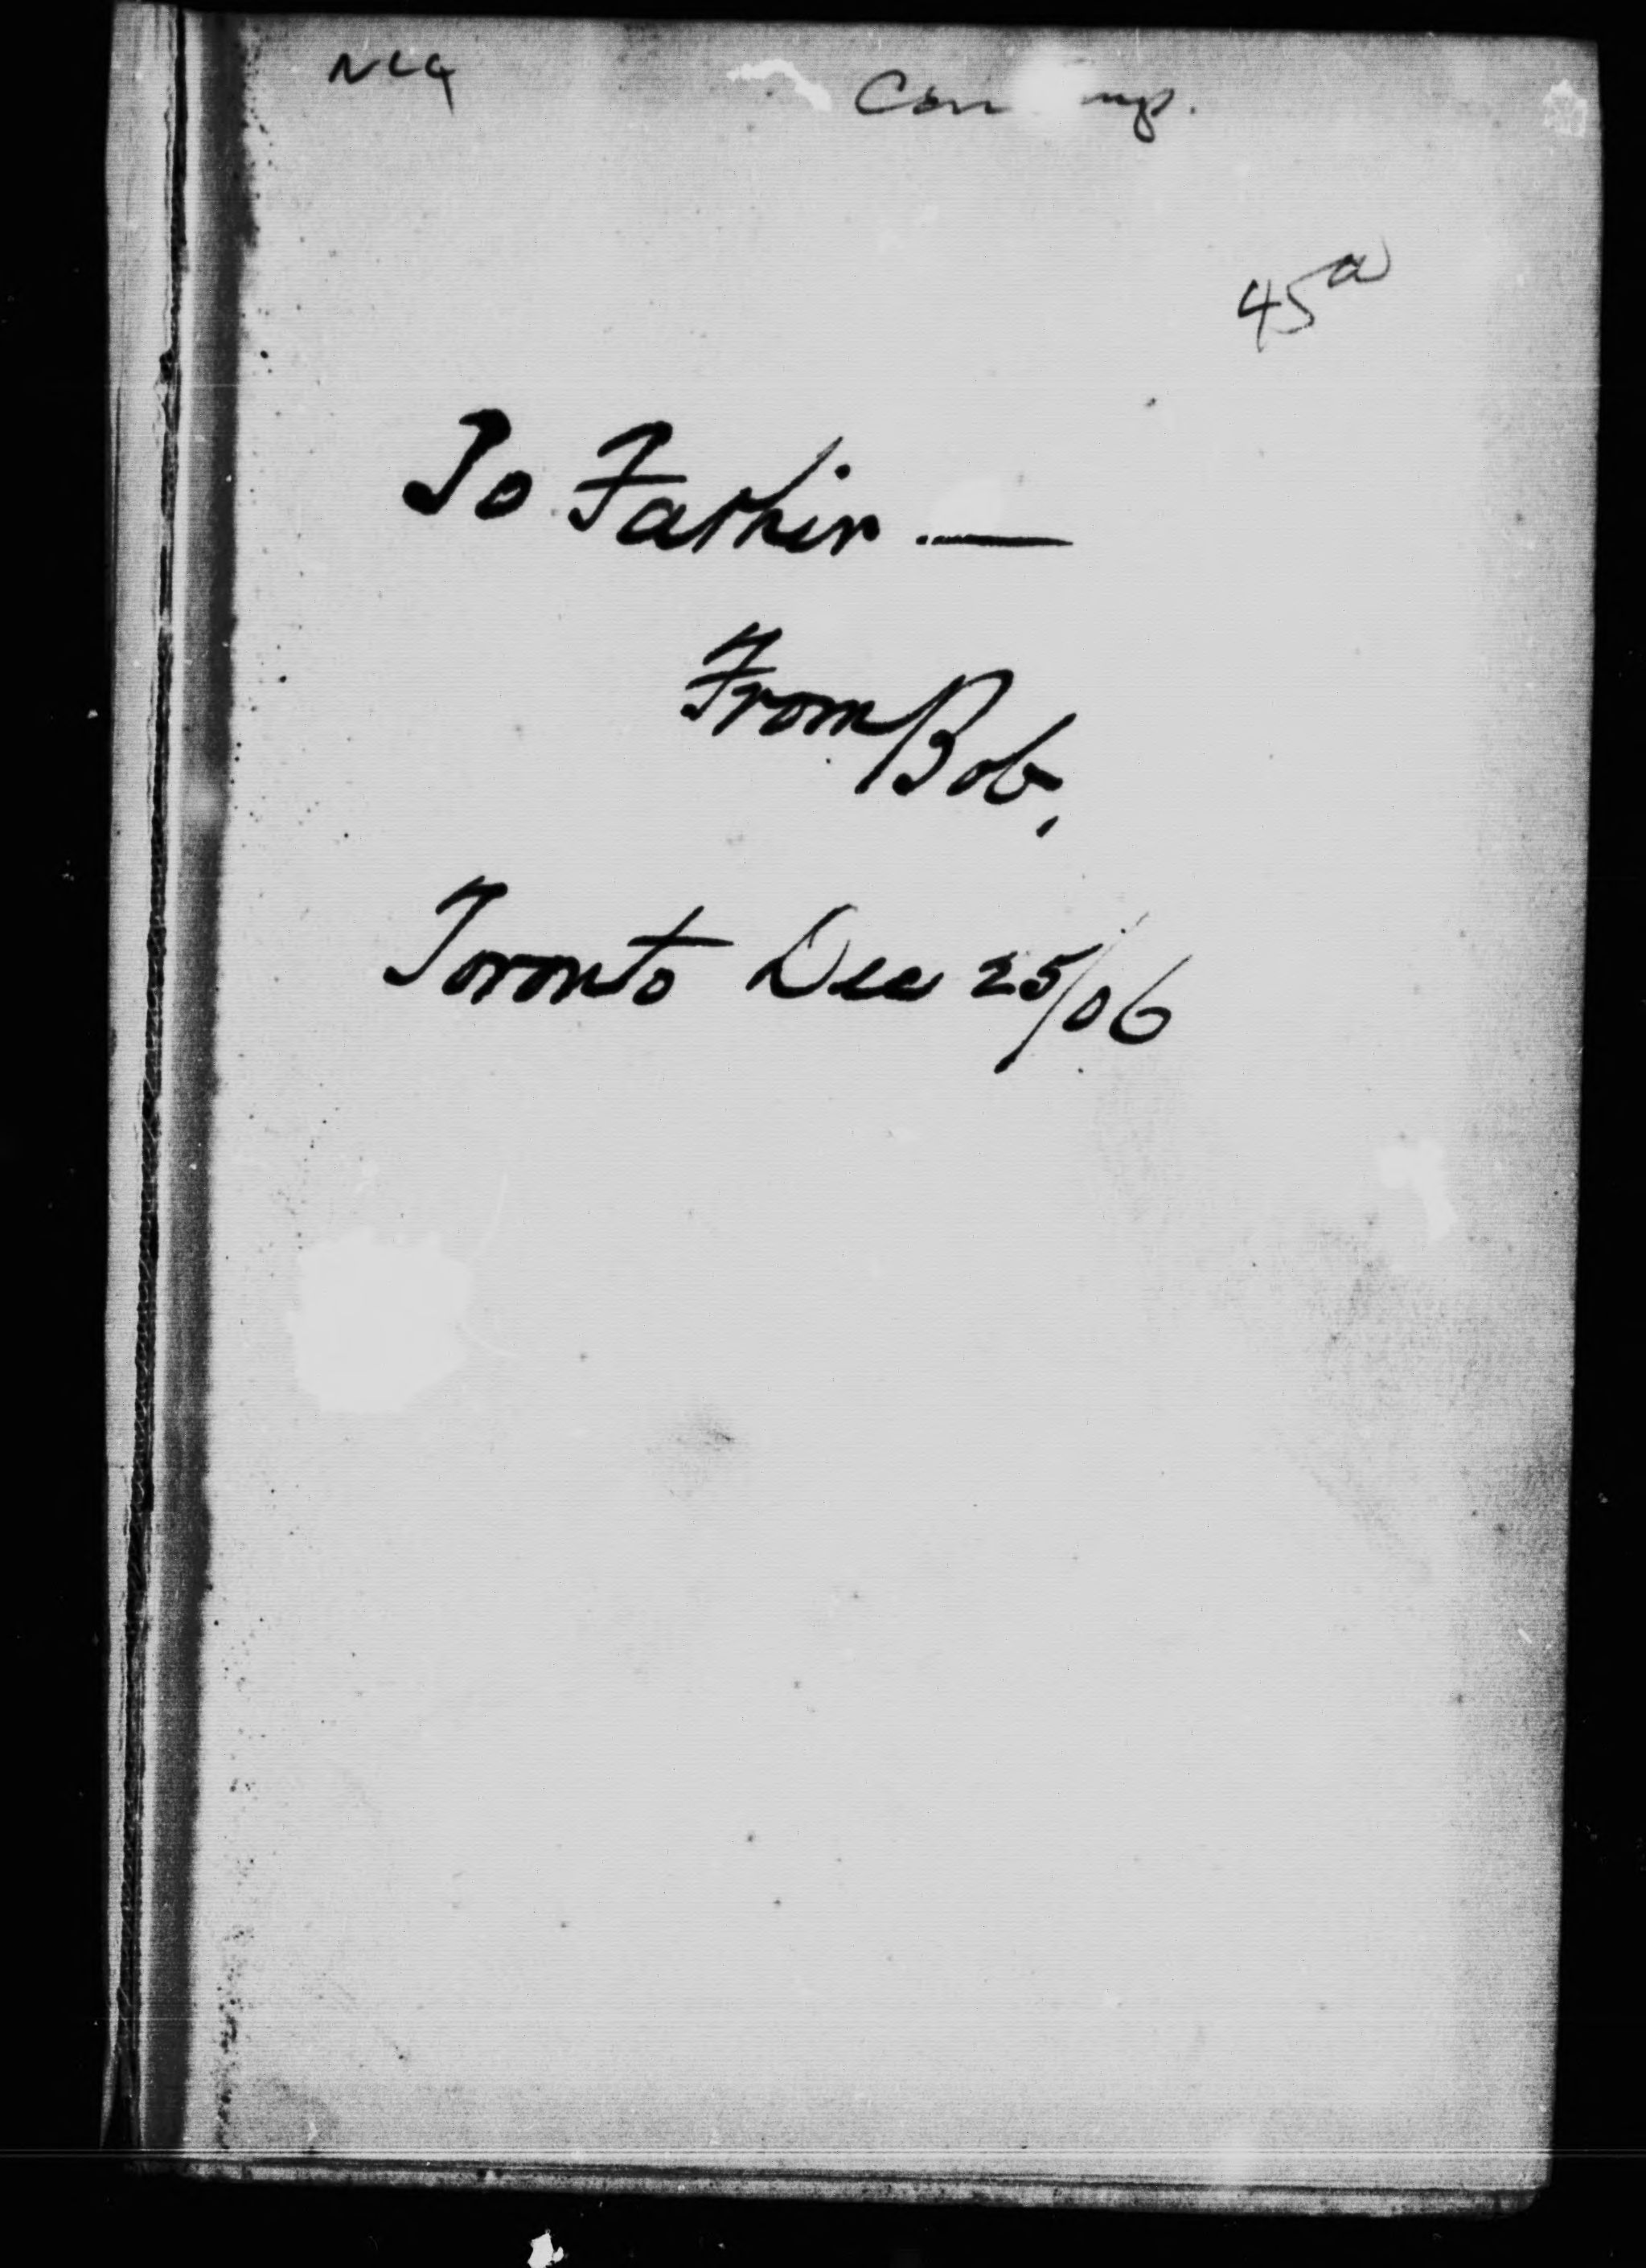 45a
To Father —
From Bob.
Toronto Dec 25/06